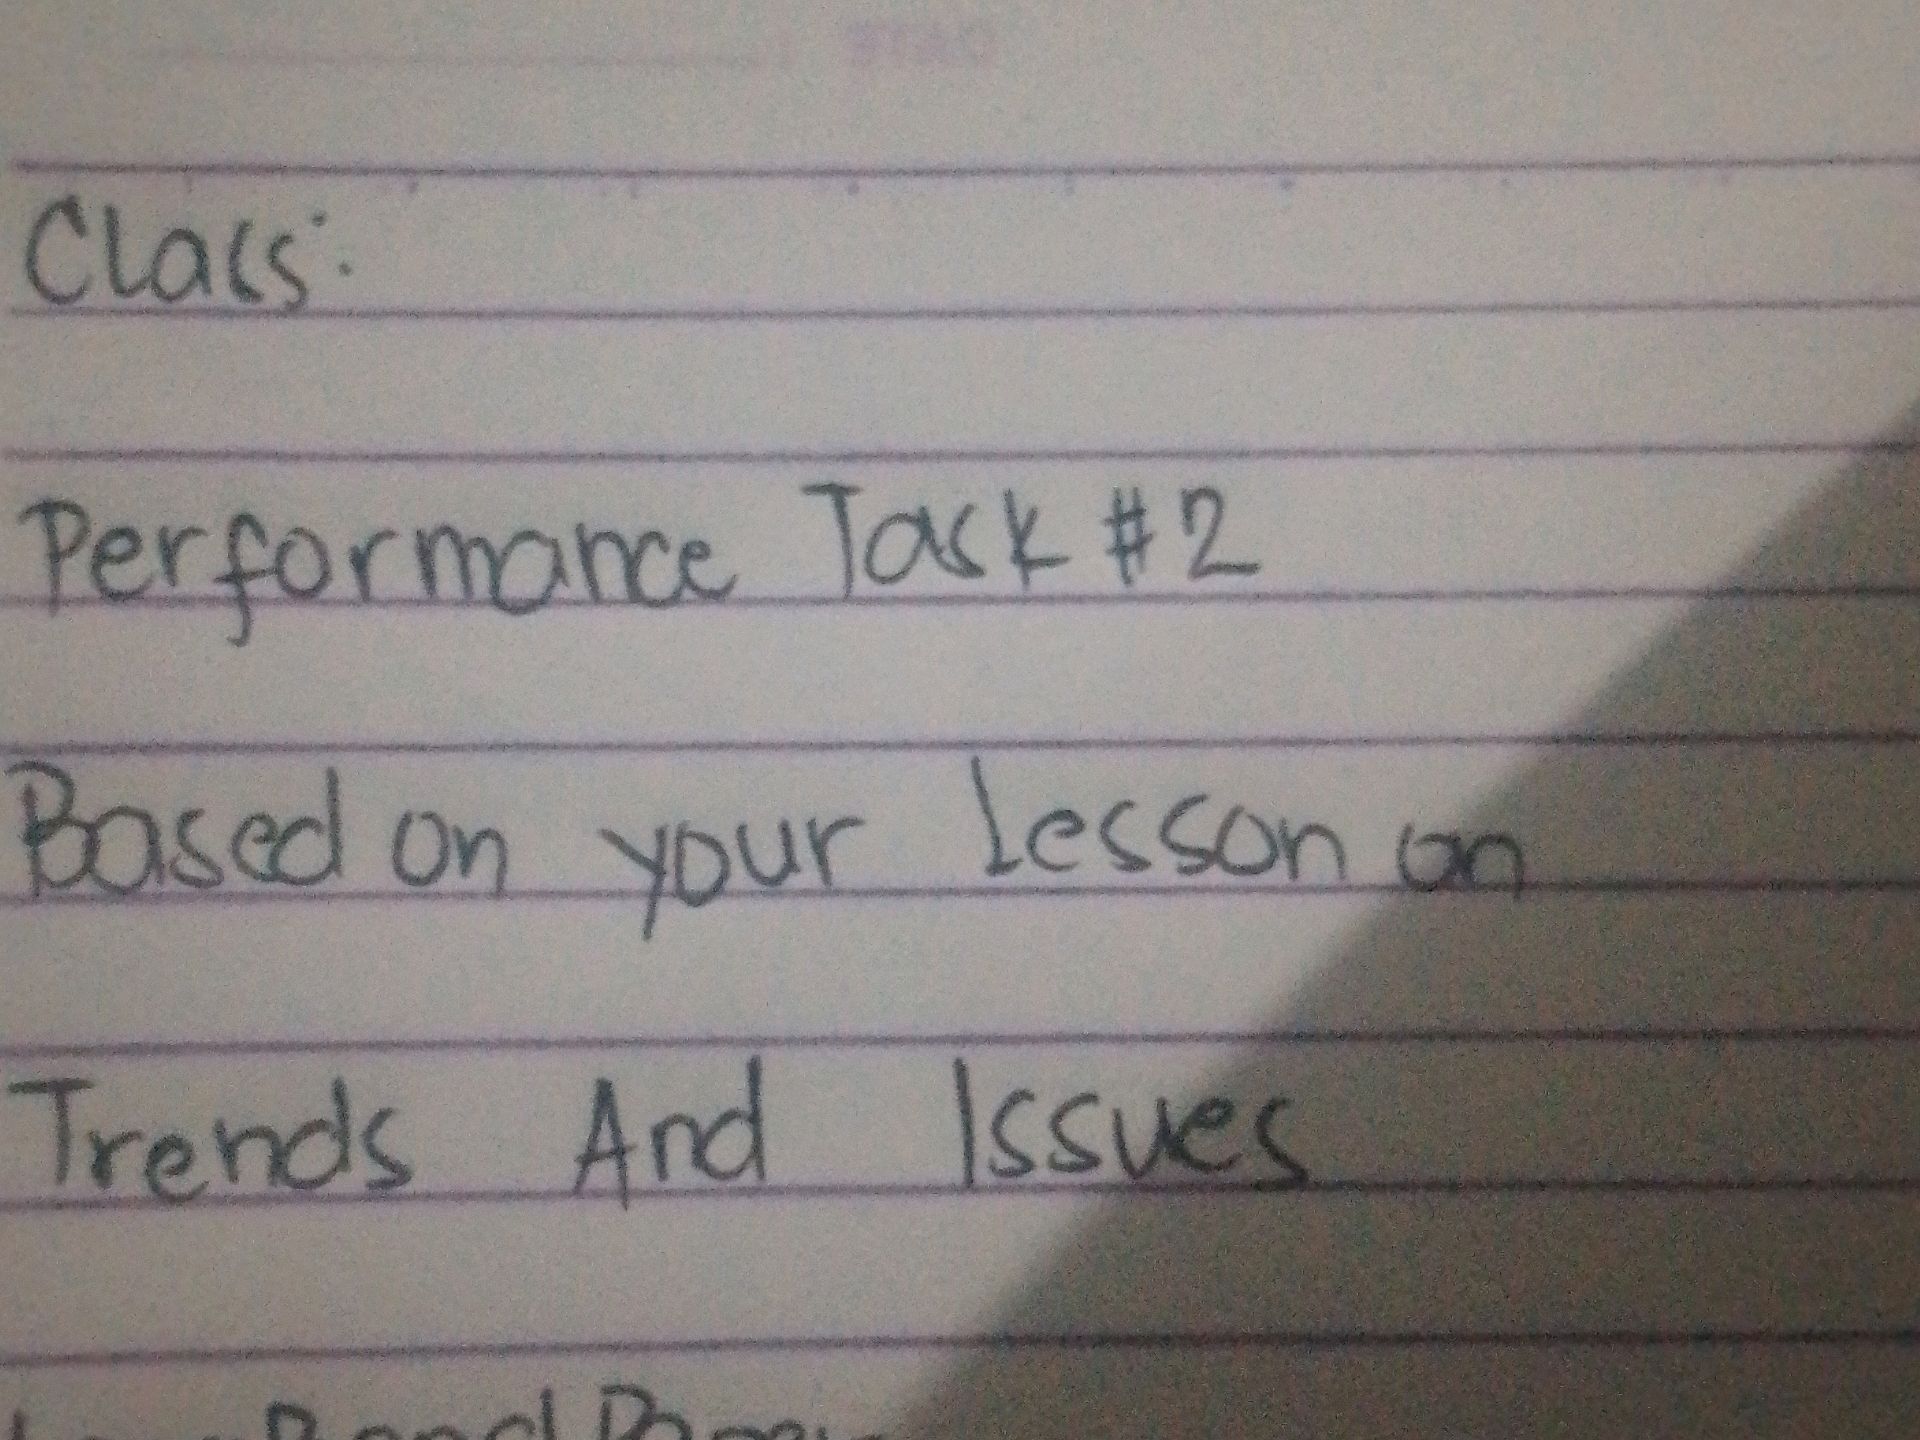 Class:
Performance Task #2
Based on your Lesson on
Trends And Issues